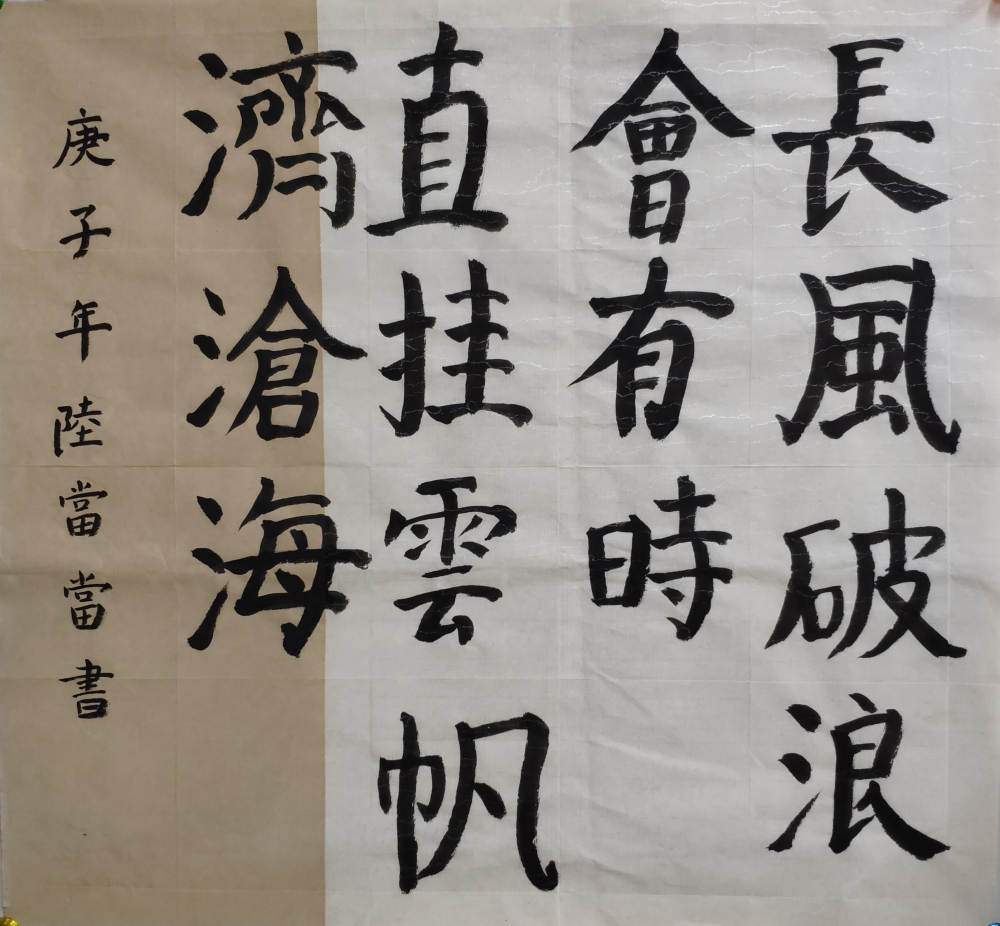 長風破浪
會有時
直挂雲帆
濟滄海
庚子年陸當當書